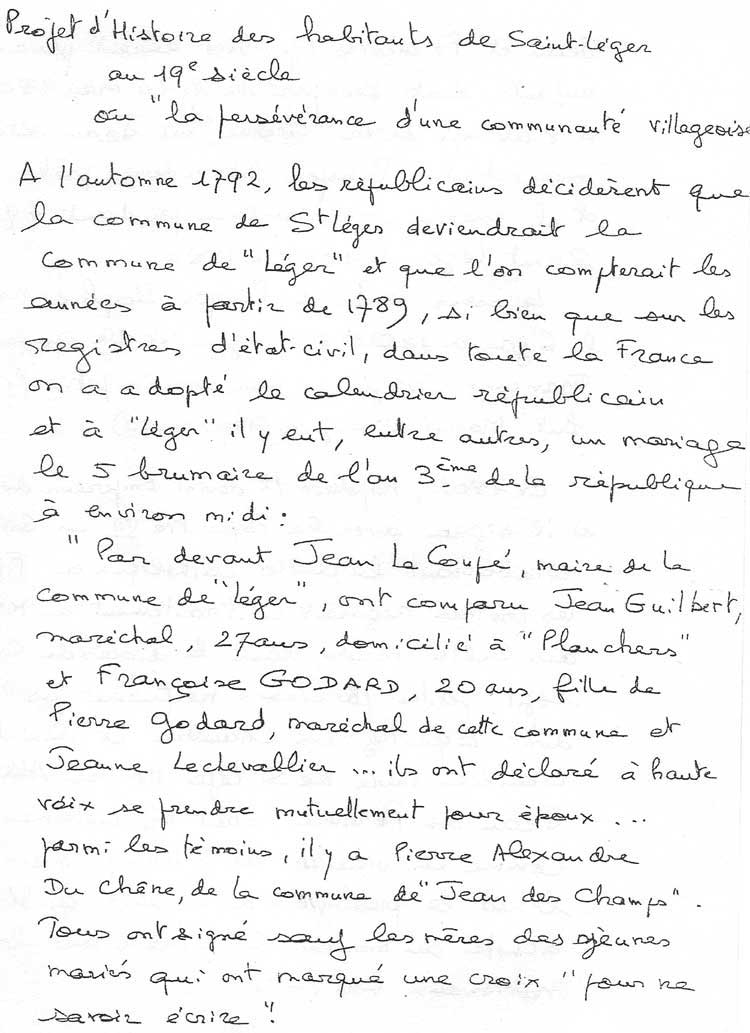 Projet d'Histoire des habitants de Saint-Léger
au 19e siècle
ou "la persévérance d'une communauté villageoise
A l'automne 1792, les républicains décidèrent que
la commune de St Léger deviendrait la
commune de "Léger" et que l'on compterait les
années à partir de 1789, si bien que sur les
registres d'état-civil, dans toute la France
on a adopté le calendrier républicain
et à "Léger" il y eut, entre autres, un mariage
le 5 brumaire de l'an 3ème de la république
à environ midi :
"Par devant Jean La Coupé, maire de la
commune de "Léger", ont comparu Jean Guilbert,
maréchal, 27 ans, domicilié à "Planchers"
et Françoise GODARD, 20 ans, fille de
Pierre Godard, maréchal de cette commune et
Jeanne Lechevallier ... ils ont déclaré à haute
voix se prendre mutuellement pour époux ...
parmi les témoins, il y a Pierre Alexandre
Du Chêne, de la commune de "Jean des Champs".
Tous ont signé sauf les mères des jeunes
mariés qui ont marqué une croix "pour ne
savoir écrire".